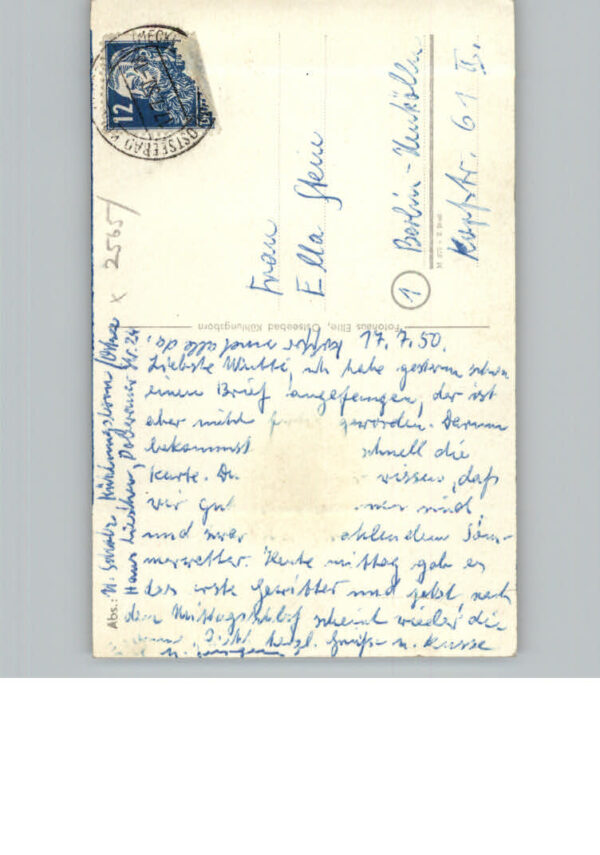 12
OSTSEEBAD
2565/
Frau
Ella Stein
① Berlin-Neukölln
Kopfstr. 61 II.
Fotohaus Eline, Ostseebad Kühlungsborn
17.7.50.
Liebste Mutti, ich habe gestern schon
einen Brief angefangen, der ist
aber nicht geworden. Darum
bekommst schnell die
Karte. Du wissen, daß
wir gut sind
und zwar Som-
merwetter. Heute mittag gab es
das erste Gewitter und jetzt nach
dem Mittagsschlaf scheint wieder die
herzl. Grüße u. Küsse
Abs.: Kühlungsborn/Ostsee
Haus Doberaner Str. 24